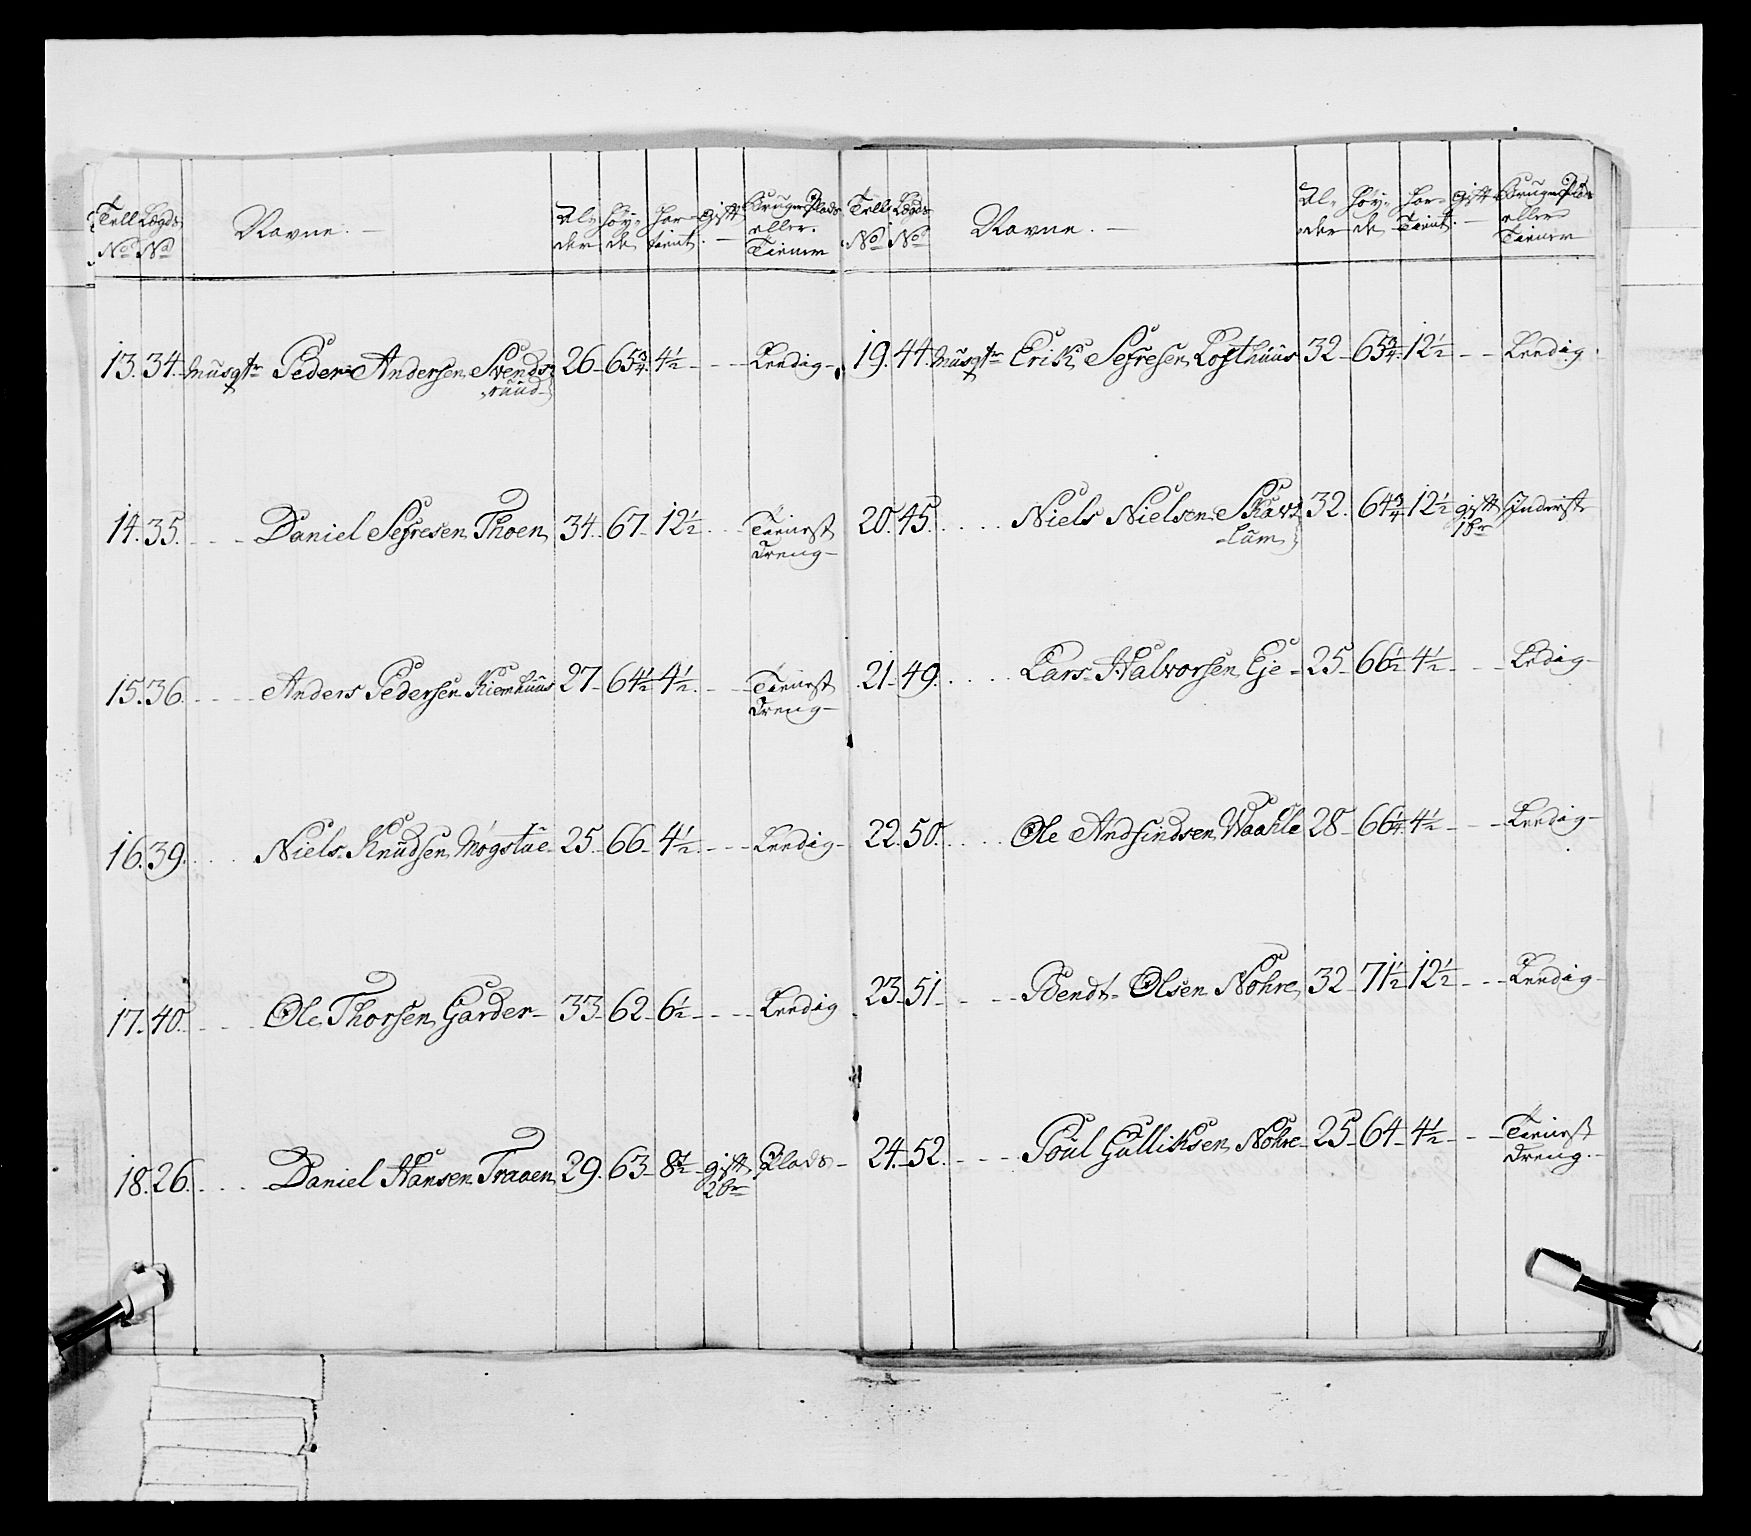 Tell No Lægds No Navne. Alder Høyde Har tient. Gift. Bruger Plads eller Tiener
13. 34. Musqtr Peder Andersen Svends= 26 65 3/4 4 1/2 Leedig
ruud
14. 35. Daniel Sefresen Thoen 34 67 12 1/2 Tienest
Dreng
15. 36. Anders Pedersen Kiemhuus 27 64 1/2 4 1/2 Tienest
Dreng
16. 39. Niels Knudsen Mogstue 25 66 4 1/2 Leedig
17. 40. Ole Thorsen Garder 33 62 6 1/2 Leedig
18. 26. Daniel Hansen Traaen 29. 63 8 1/2 gift Plads
2 br
Tell No Lægds No Navne. Alder Høyde Har Tient. Gift Bruger Plads eller Tiener
19. 44. Musqtr Erik Sefresen Lofthuus 32 65 3/4 12 1/2 Leedig
20. 45. Niels Nielsen Skart 32. 64 3/4 12 1/2 gift Inderst
lum 1 br
21. 49. Lars Halvorsen Eje 25 66 1/2 4 1/2 Ledig
22. 50. Ole Andfindsen Waahle 28 66 1/4 4 1/2 Leedig
23. 51. Bendt Olsen Nohre 32 71 1/2 12 1/2 Leedig
24. 52. Poul Gulliksen Nohre 25 64 4 1/2 Tienest
Dreng.